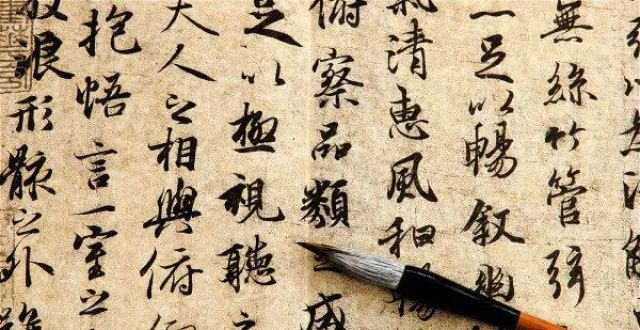 無絲竹管弦
足以暢叙幽
氣清惠風和暢
俯察品類之盛
足以極視聽之
夫人之相與俯仰
抱悟言一室之
放浪形骸之外雖